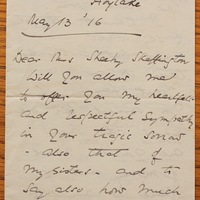 Hoylake
May 13 '16
Dear Mrs Sheehy Skeffington
Will you allow me
to offer you my heartfelt
and respectful sympathy
in your tragic sorrow
- also that of
my sisters - and to
say also how much